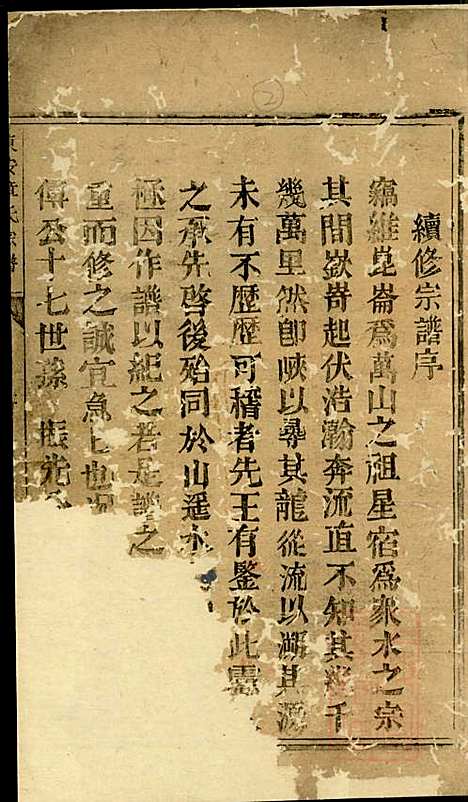 續修宗譜序
竊維崑崙爲萬山之祖星宿爲衆水之宗
其間嶽峙起伏浩瀚奔流直不知其幾千
幾萬里然卽峽以尋其龍從流以溯其源
未有不歷歷可稽者先王有鑒於此
之承先啓後殆同於山遥水
極因作譜以紀之若是譜之
重而修之誠宜急也况
傅公十七世孫 振先
氏宗譜
2